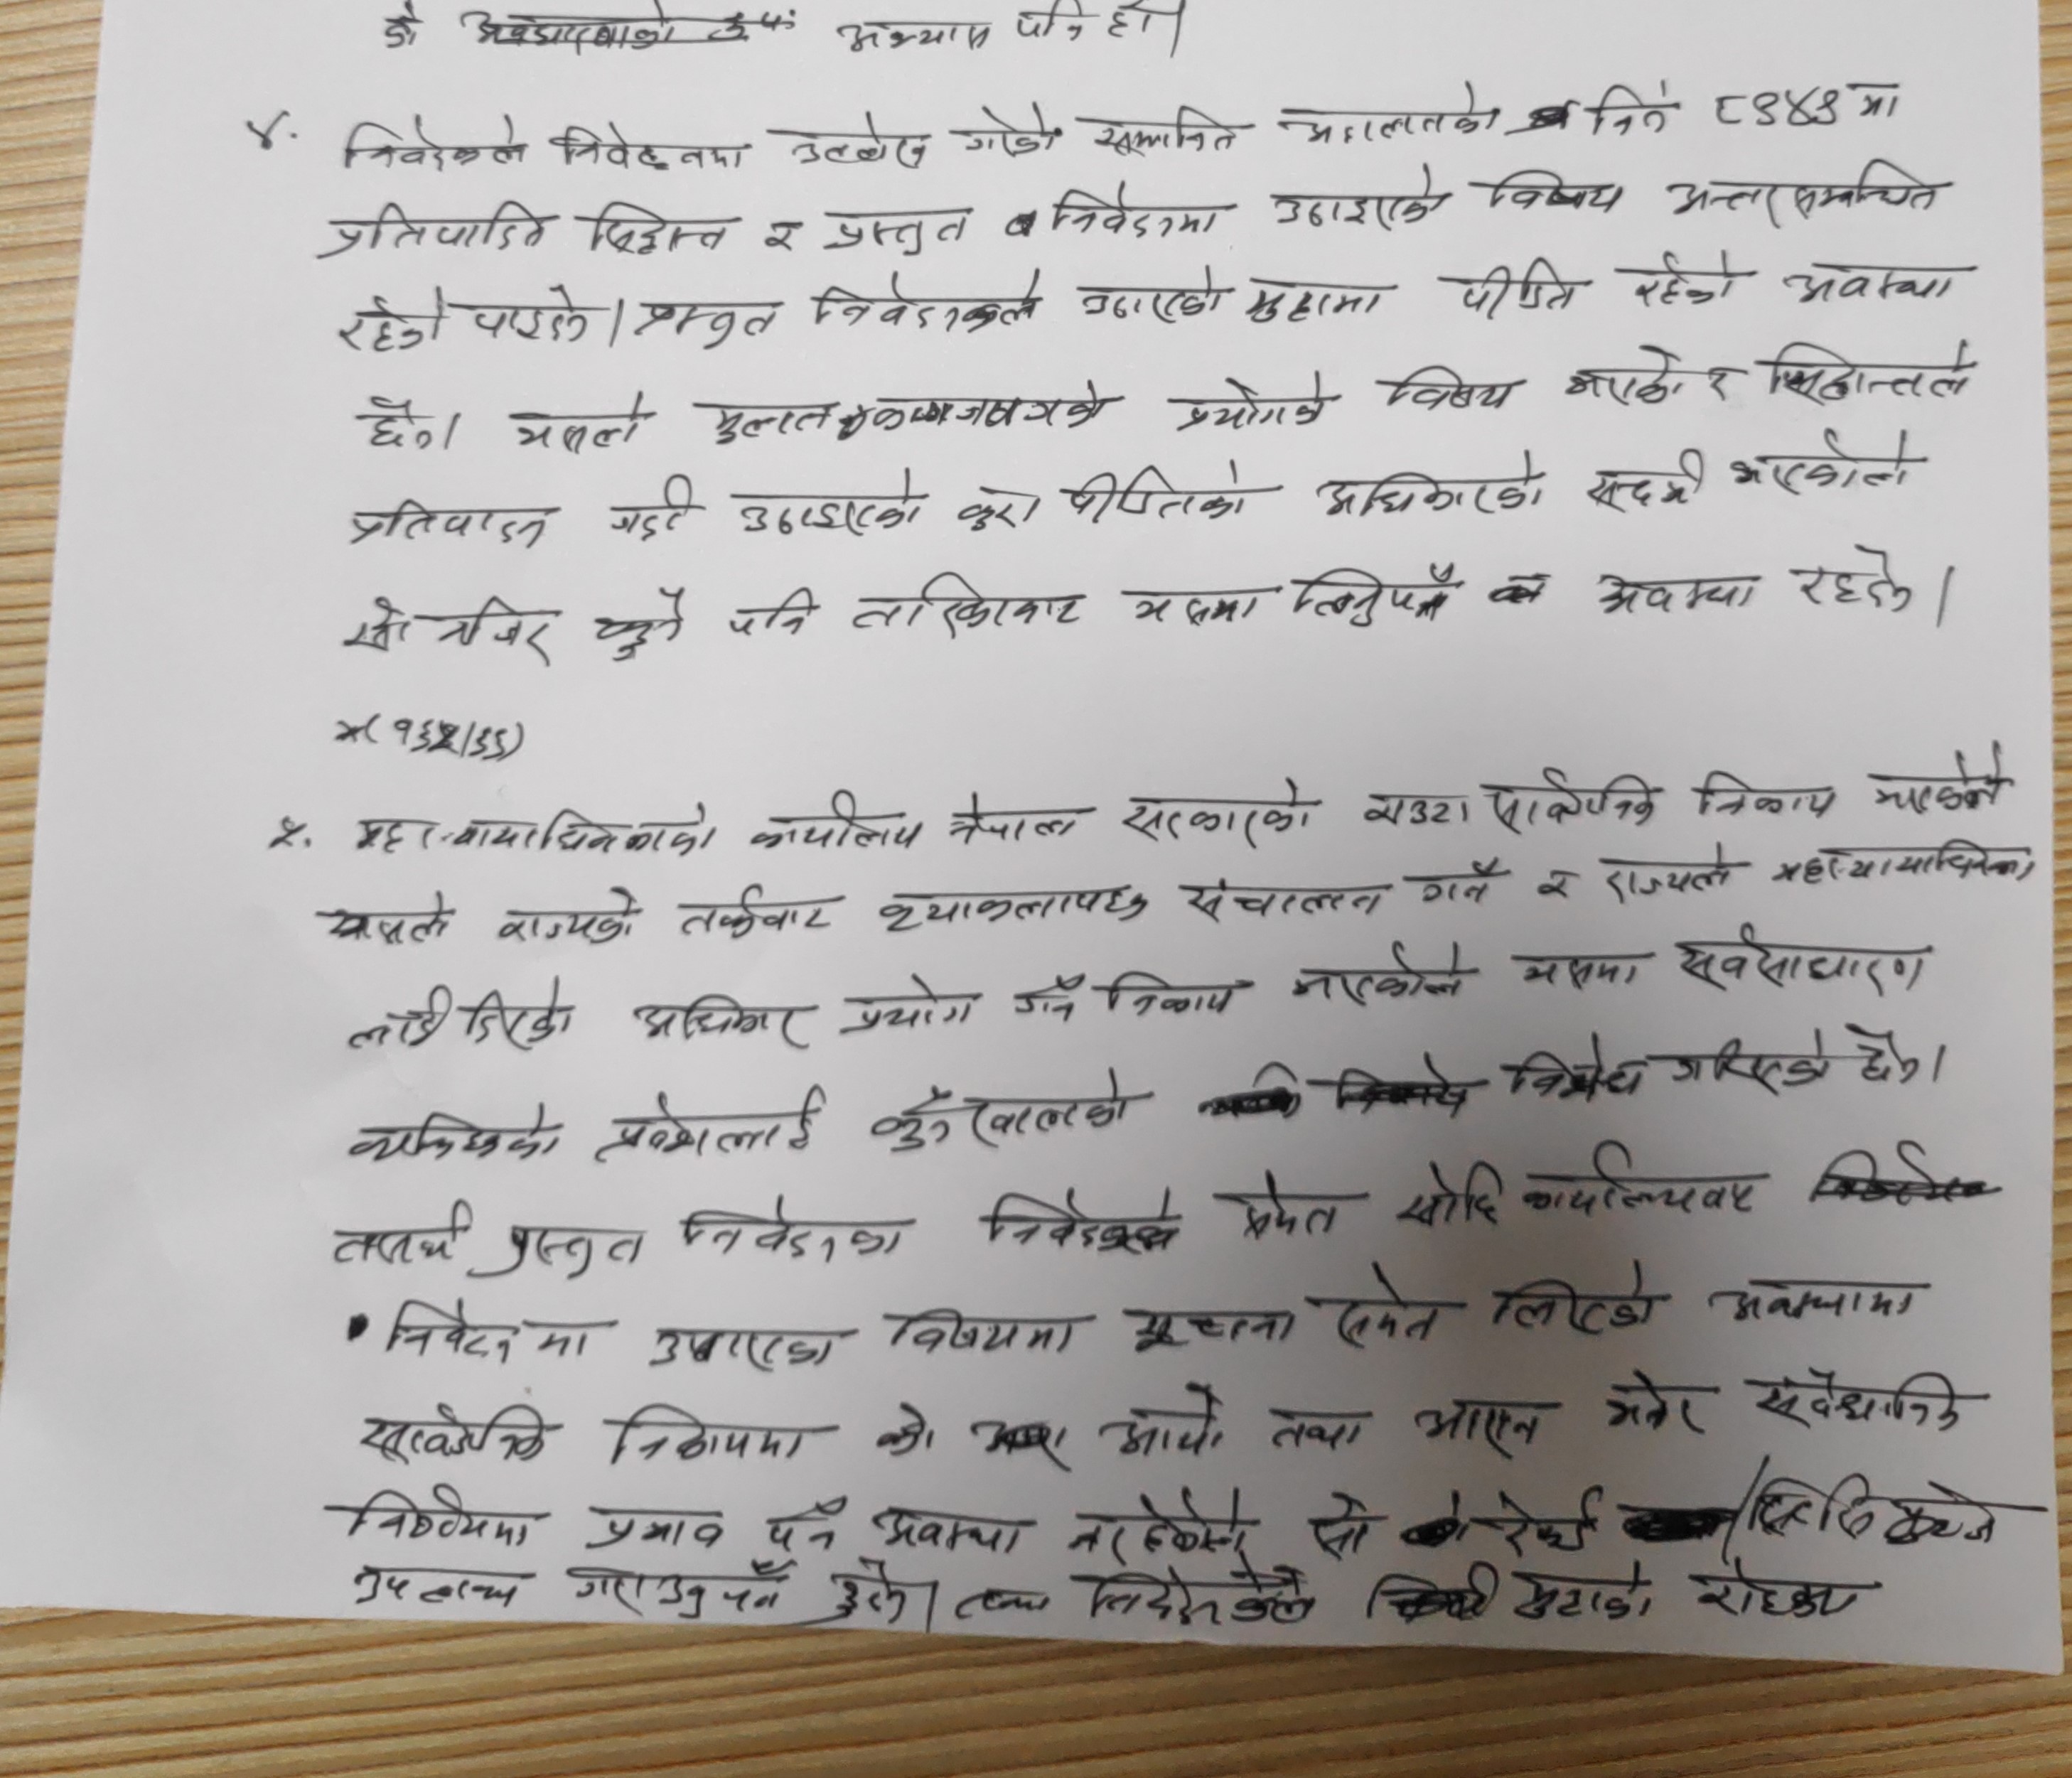 को अभ्यास पनि हो।
४. निवेदकले निवेदनमा उल्लेख गरेको सम्मानित अदालतको नि.नं ८९४९ मा
प्रतिपादित सिद्धान्त र प्रस्तुत निवेदनमा उठाइएको विषय अन्तरसम्बन्धित
रहेको पाइदैन। प्रस्तुत निवेदकले उठाएको मुद्दामा पीडित रहेको अवस्था
छैन। यसले मुलत प्रयोगको विषय भएको र सिद्धान्तले
प्रतिपादन गर्दा उठाइएको कुरा पीडितको अधिकारको सन्दर्भ भएकोले
सो नजिर कुनै पनि तरिकाबाट यसमा लिनुपर्ने अवस्था रहदैन।
५. महान्यायाधिवक्ताको कार्यालय नेपाल सरकारको एउटा सार्वजनिक निकाय भएकोले
यसले राज्यको तर्फबाट क्रियाकलापहरु संचालन गर्ने र राज्यले महान्यायाधिवक्ता
लाई दिएको अधिकार प्रयोग गर्ने निकाय भएकोले यसमा सर्वसाधारण
व्यक्तिहरुको प्रवेशलाई कुनै खालको निषेध गरिएको छैन।
तसर्थ प्रस्तुत निवेदनका निवेदकले समेत सोहि कार्यालयबाट
निवेदनमा उठाएका विषयमा सूचना समेत लिएको अवस्थामा
सार्वजनिक निकायमा को आयो तथा आएन भनेर संवैधानिक
निकायमा प्रभाव पर्ने अवस्था नरहेकोले सो सिसिटिभी फुटेज
उपलब्ध गराउनुपर्ने हुदैन। तथा निवेदकले मुद्दाको रोहबाट